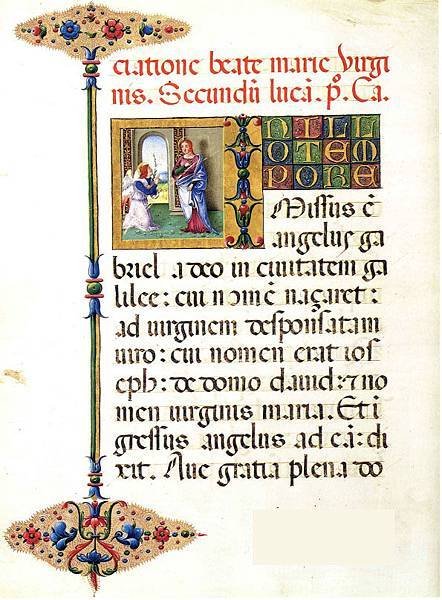 ciatione beate marie Virgi
nis. Secundū lucā. p̊. Ca.
IN ILL
O TEM
PORE
Missus ē
angelus ga
briel a deo in ciuitatem ga
lilee: cui nomē naçaret:
ad uirginem desponsatam
uiro: cui nomen erat ios
eph: de domo dauid: ⁊ no
men uirginis maria. Et ī
gressus angelus ad eā: di
xit. Aue gratia plena do